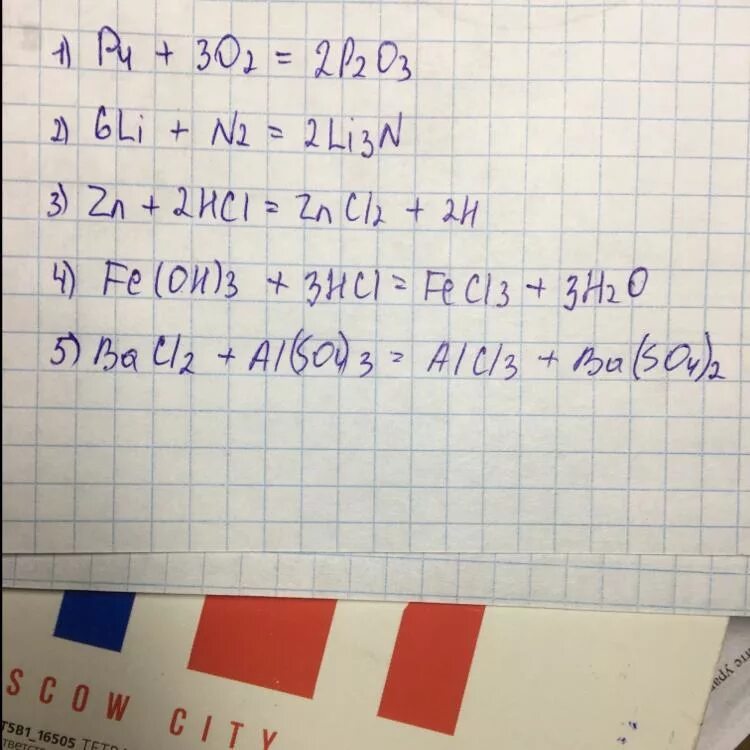 1) P4 + 3O2 = 2P2O3
2) 6Li + N2 = 2Li3N
3) Zn + 2HCl = ZnCl2 + 2H
4) Fe(OH)3 + 3HCl = FeCl3 + 3H2O
5) BaCl2 + Al(SO4)3 = AlCl3 + Ba(SO4)2
SCOW CITY
T5B1_16505 ТЕТР